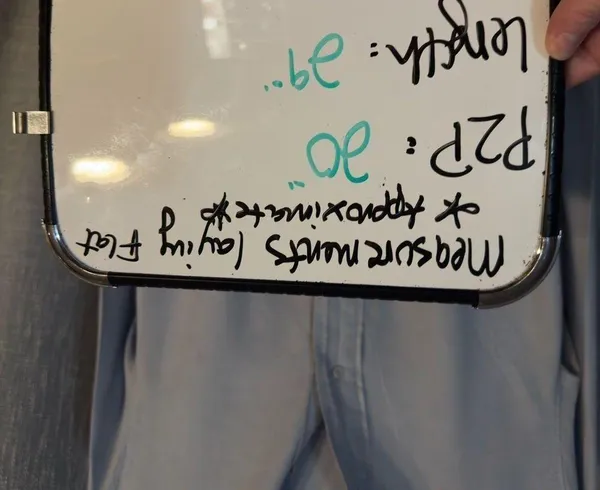 Measurements laying Flat
* Approximate *
P2P: 20"
Length: 29"